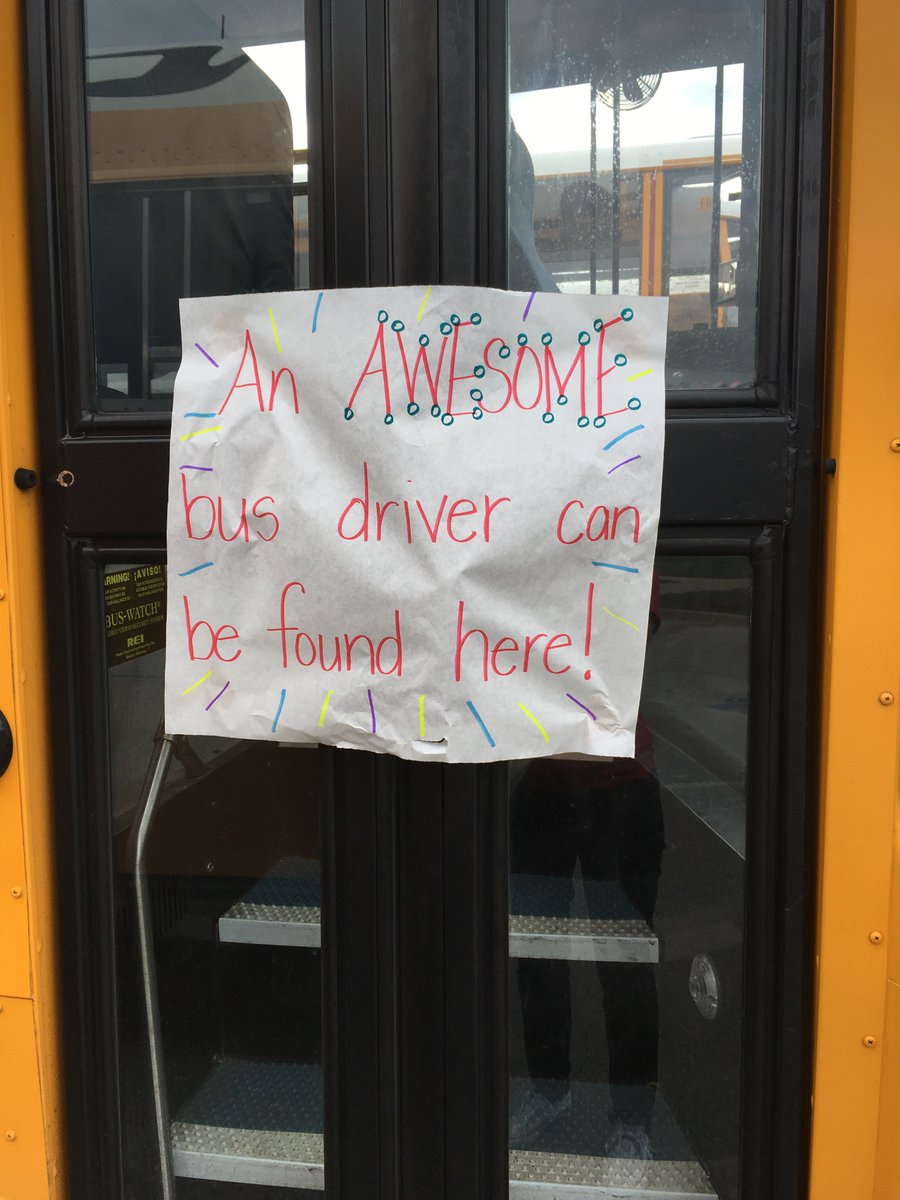 An AWESOME
bus driver can
be found here!
ARNING! ¡AVISO!
BUS-WATCH
REI